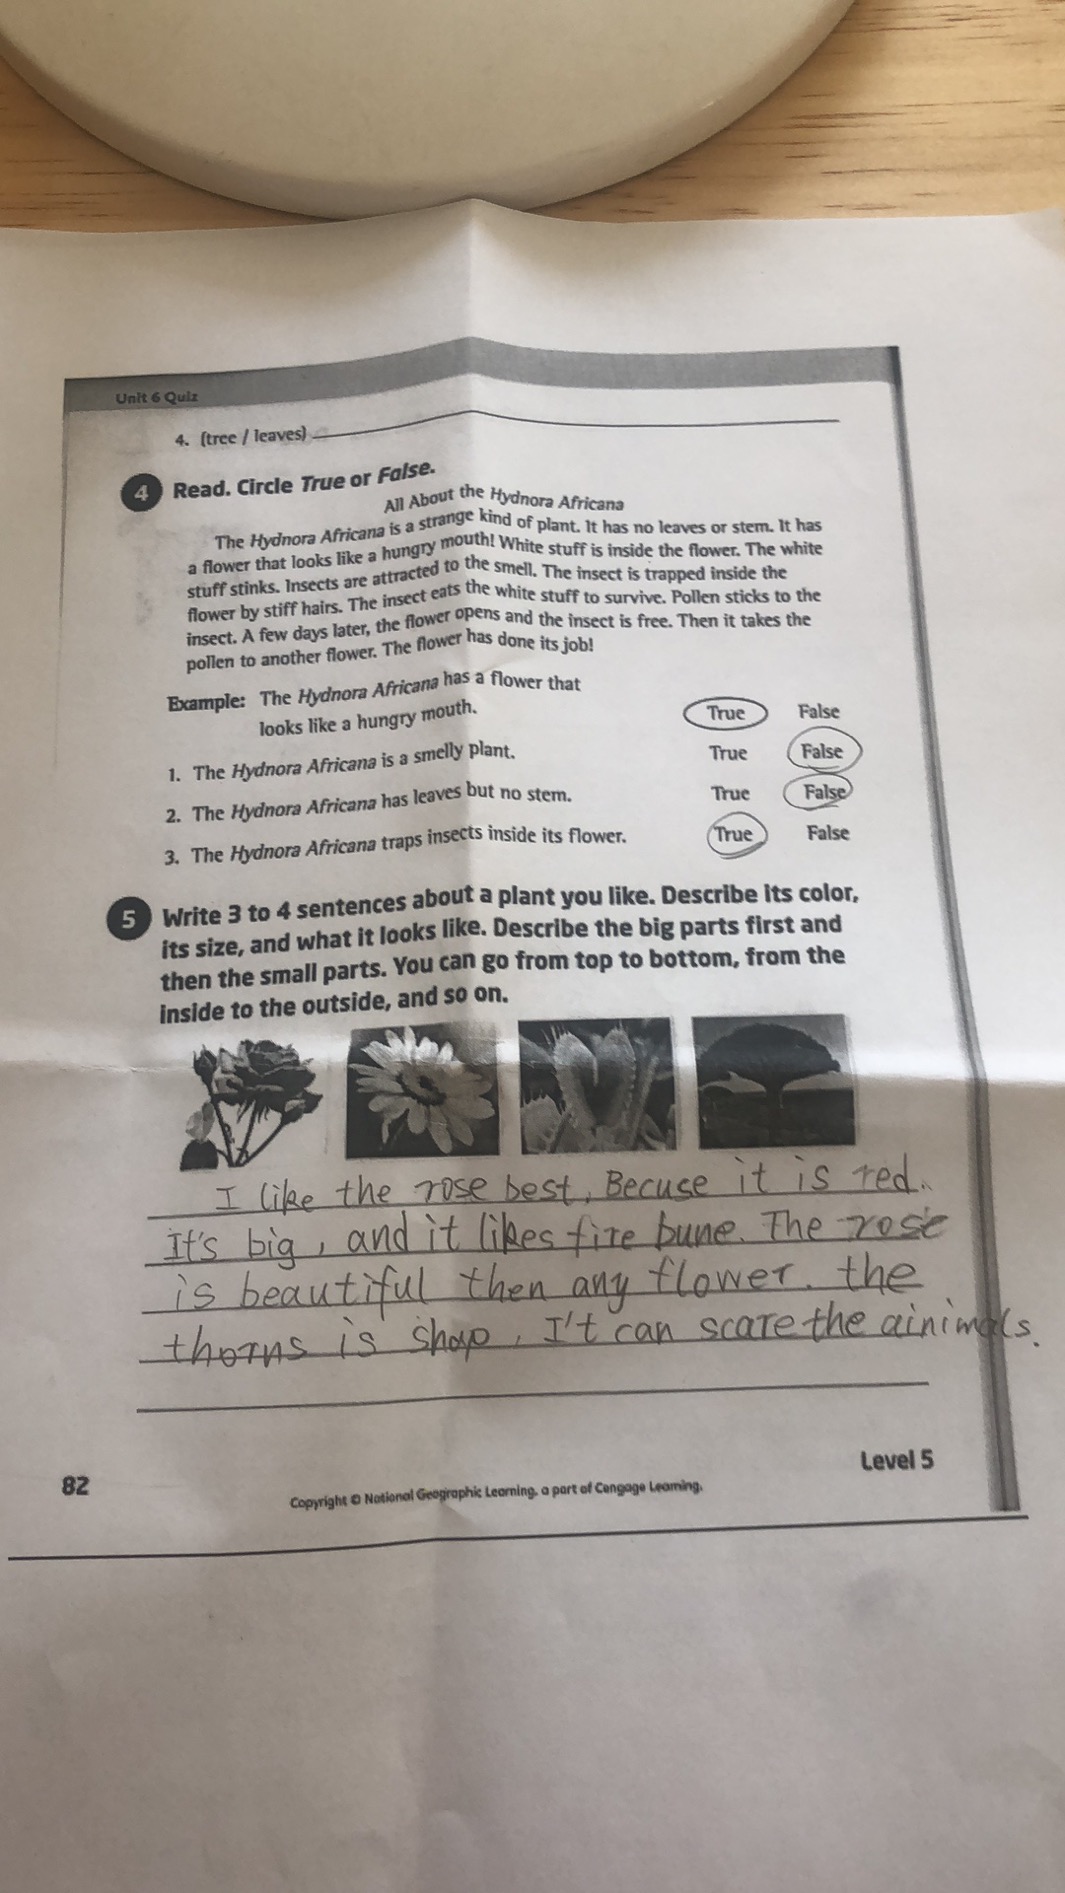 Unit 6 Quiz
4. (tree / leaves)
4 Read. Circle True or False.
All About the Hydnora Africana
The Hydnora Africana is a strange kind of plant. It has no leaves or stem. It has
a flower that looks like a hungry mouth! White stuff is inside the flower. The white
stuff stinks. Insects are attracted to the smell. The insect is trapped inside the
flower by stiff hairs. The insect eats the white stuff to survive. Pollen sticks to the
insect. A few days later, the flower opens and the insect is free. Then it takes the
pollen to another flower. The flower has done its job!
Example: The Hydnora Africana has a flower that
looks like a hungry mouth. True False
1. The Hydnora Africana is a smelly plant. True False
2. The Hydnora Africana has leaves but no stem. True False
3. The Hydnora Africana traps insects inside its flower. True False
5 Write 3 to 4 sentences about a plant you like. Describe its color,
its size, and what it looks like. Describe the big parts first and
then the small parts. You can go from top to bottom, from the
inside to the outside, and so on.
I like the rose best, Becuse it is red.
It's big, and it likes fire bune. The rose
is beautiful then any flower. the
thorns is shap, I't can scare the ainimals.
82
Level 5
Copyright © National Geographic Learning, a part of Cengage Learning.